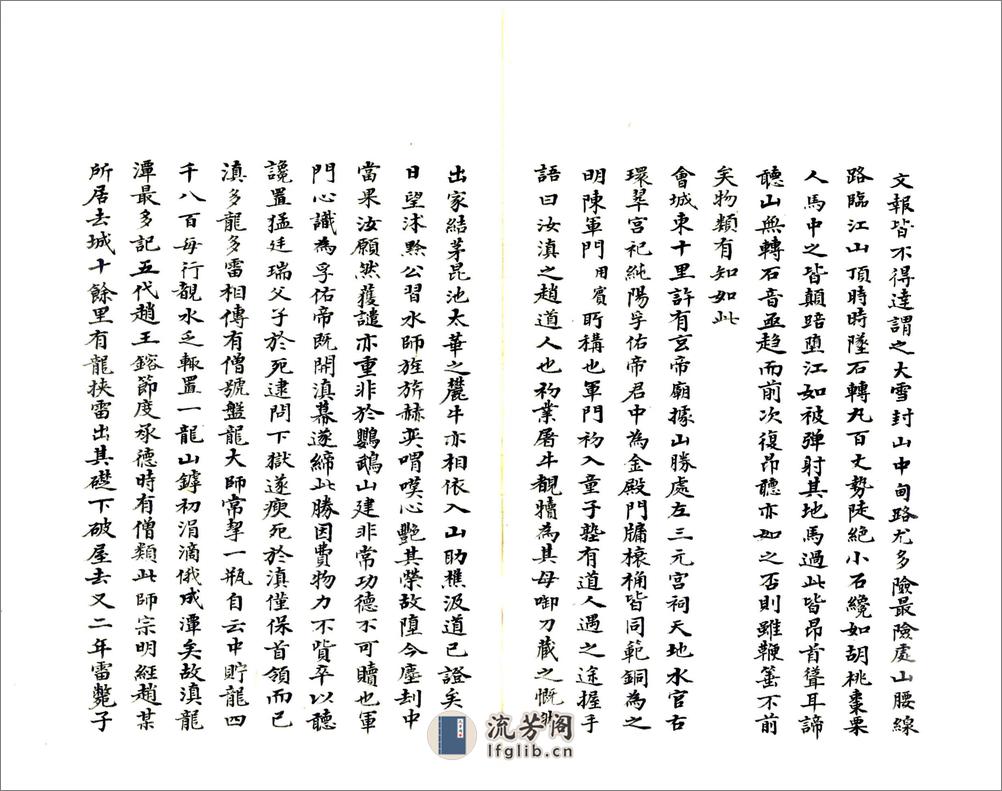 文報皆不得達謂之大雪封山中甸路尤多險最險處山腰線
路臨江山頂時時墜石轉丸百丈勢陡絕小石纔如胡桃棗栗
人馬中之皆顛踣墮江如被彈射其地馬過此皆昂首聳耳諦
聽山無轉石音亟趋而前次復昂聽亦如之否則雖鞭箠不前
矣物類有知如此
會城東十里許有玄帝廟據山勝處左三元宮祠天地水官右
環翠宮祀純陽孚佑帝君中為金殿門牖榱桷皆同範銅為之
明陳軍門用賓所構也軍門初入童子塾有道人遇之途握手
語曰汝滇之趙道人也初業屠牛覩犢為其母啣刀藏之慨
出家結茅昆池太華之麓牛亦相依入山助樵汲道已證矣
日望沐黔公習水師旌旂赫奕喟嘆心艷其榮故墮今塵刦中
當果汝願然獲譴亦重非於鸚鵡山建非常功德不可贖也軍
門心識為孚佑帝既開滇幕遂締此勝因費物力不貲卒以聽
讒置猛廷瑞父子於死逮問下獄遂瘐死於滇僅保首領而已
滇多龍多雷相傳有僧號盤龍大師常挈一瓶自云中貯龍四
千八百每行覩水乏輒置一龍山罅初涓滴俄成潭矣故滇龍
潭最多記五代趙王鎔節度承德時有僧類此師宗明經趙某
所居去城十餘里有龍挾雷出其礎下破屋去又二年雷斃子
流芳阁
lfglib.cn